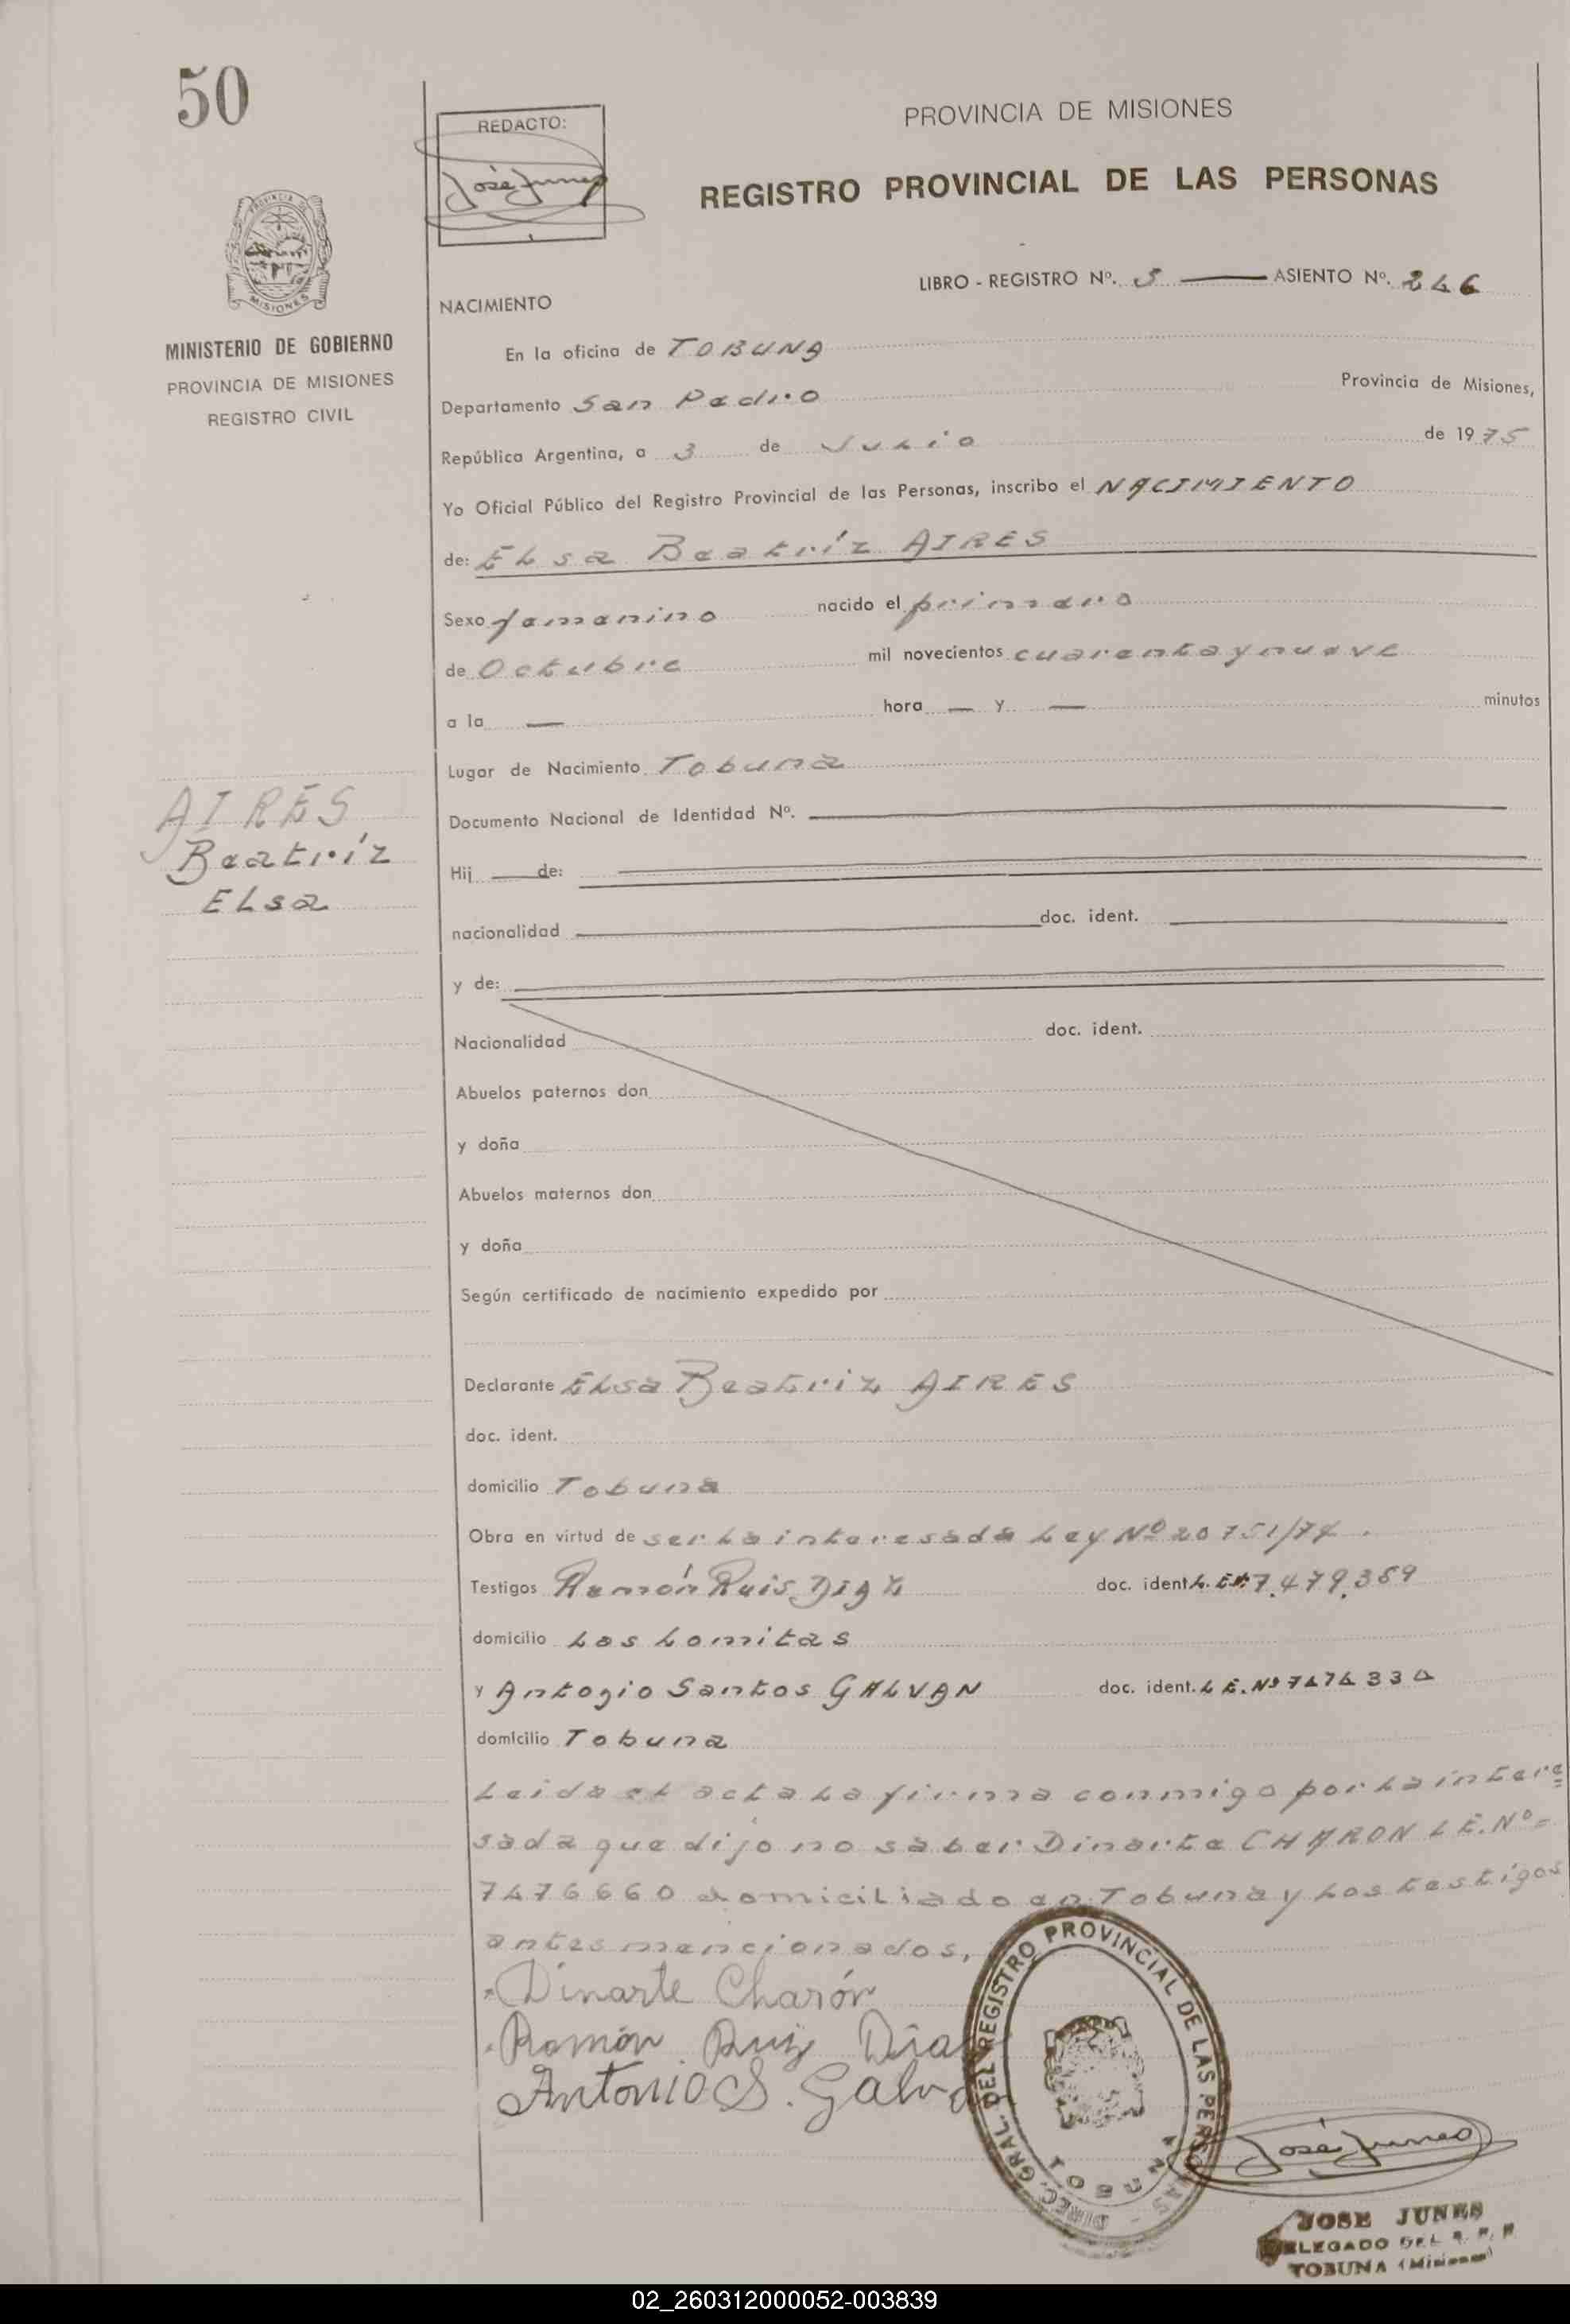 50
REDACTO:
José Junes
PROVINCIA DE MISIONES
REGISTRO PROVINCIAL DE LAS PERSONAS
MISIONES
MINISTERIO DE GOBIERNO
PROVINCIA DE MISIONES
REGISTRO CIVIL
LIBRO - REGISTRO Nº. 3 ASIENTO Nº. 246
NACIMIENTO
En la oficina de TOBUNA
Departamento San Pedro Provincia de Misiones,
República Argentina, a 3 de Julio de 1975
Yo Oficial Público del Registro Provincial de las Personas, inscribo el NACIMIENTO
de: ELsa Beatríz AIRES
Sexo femenino nacido el primero
de Octubre mil novecientos cuarenta y nueve
a la — hora — y — minutos
Lugar de Nacimiento Tobuna
Documento Nacional de Identidad Nº.
AIRES
Beatríz
ELsa
Hij de:
nacionalidad doc. ident.
y de:
Nacionalidad doc. ident.
Abuelos paternos don
y doña
Abuelos maternos don
y doña
Según certificado de nacimiento expedido por
Declarante ELsa Beatriz AIRES
doc. ident.
domicilio Tobuna
Obra en virtud de ser La interesada Ley Nº 20751/74.
Testigos Ramón Ruis DIAZ doc. ident L.E. 7.479.359
domicilio Las Lomitas
y Antonio Santos GALVAN doc. ident. L E. Nº 7474334
domicilio Tobuna
Leida el acta La firma conmigo por La intere
sada que dijo no saber Dinarte CHARON L E. Nº=
7476660 domiciliado en Tobuna y Los testigos
antes mencionados,
Dinarte Charón
Ramón Ruiz Dia
Antonio S. Galva
DIREC. GRAL. DEL REGISTRO PROVINCIAL DE LAS PERSONAS -
TOBUNA
José Junes
JOSE JUNES
DELEGADO DEL R. P. P.
TOBUNA (Misiones)
02_260312000052-003839